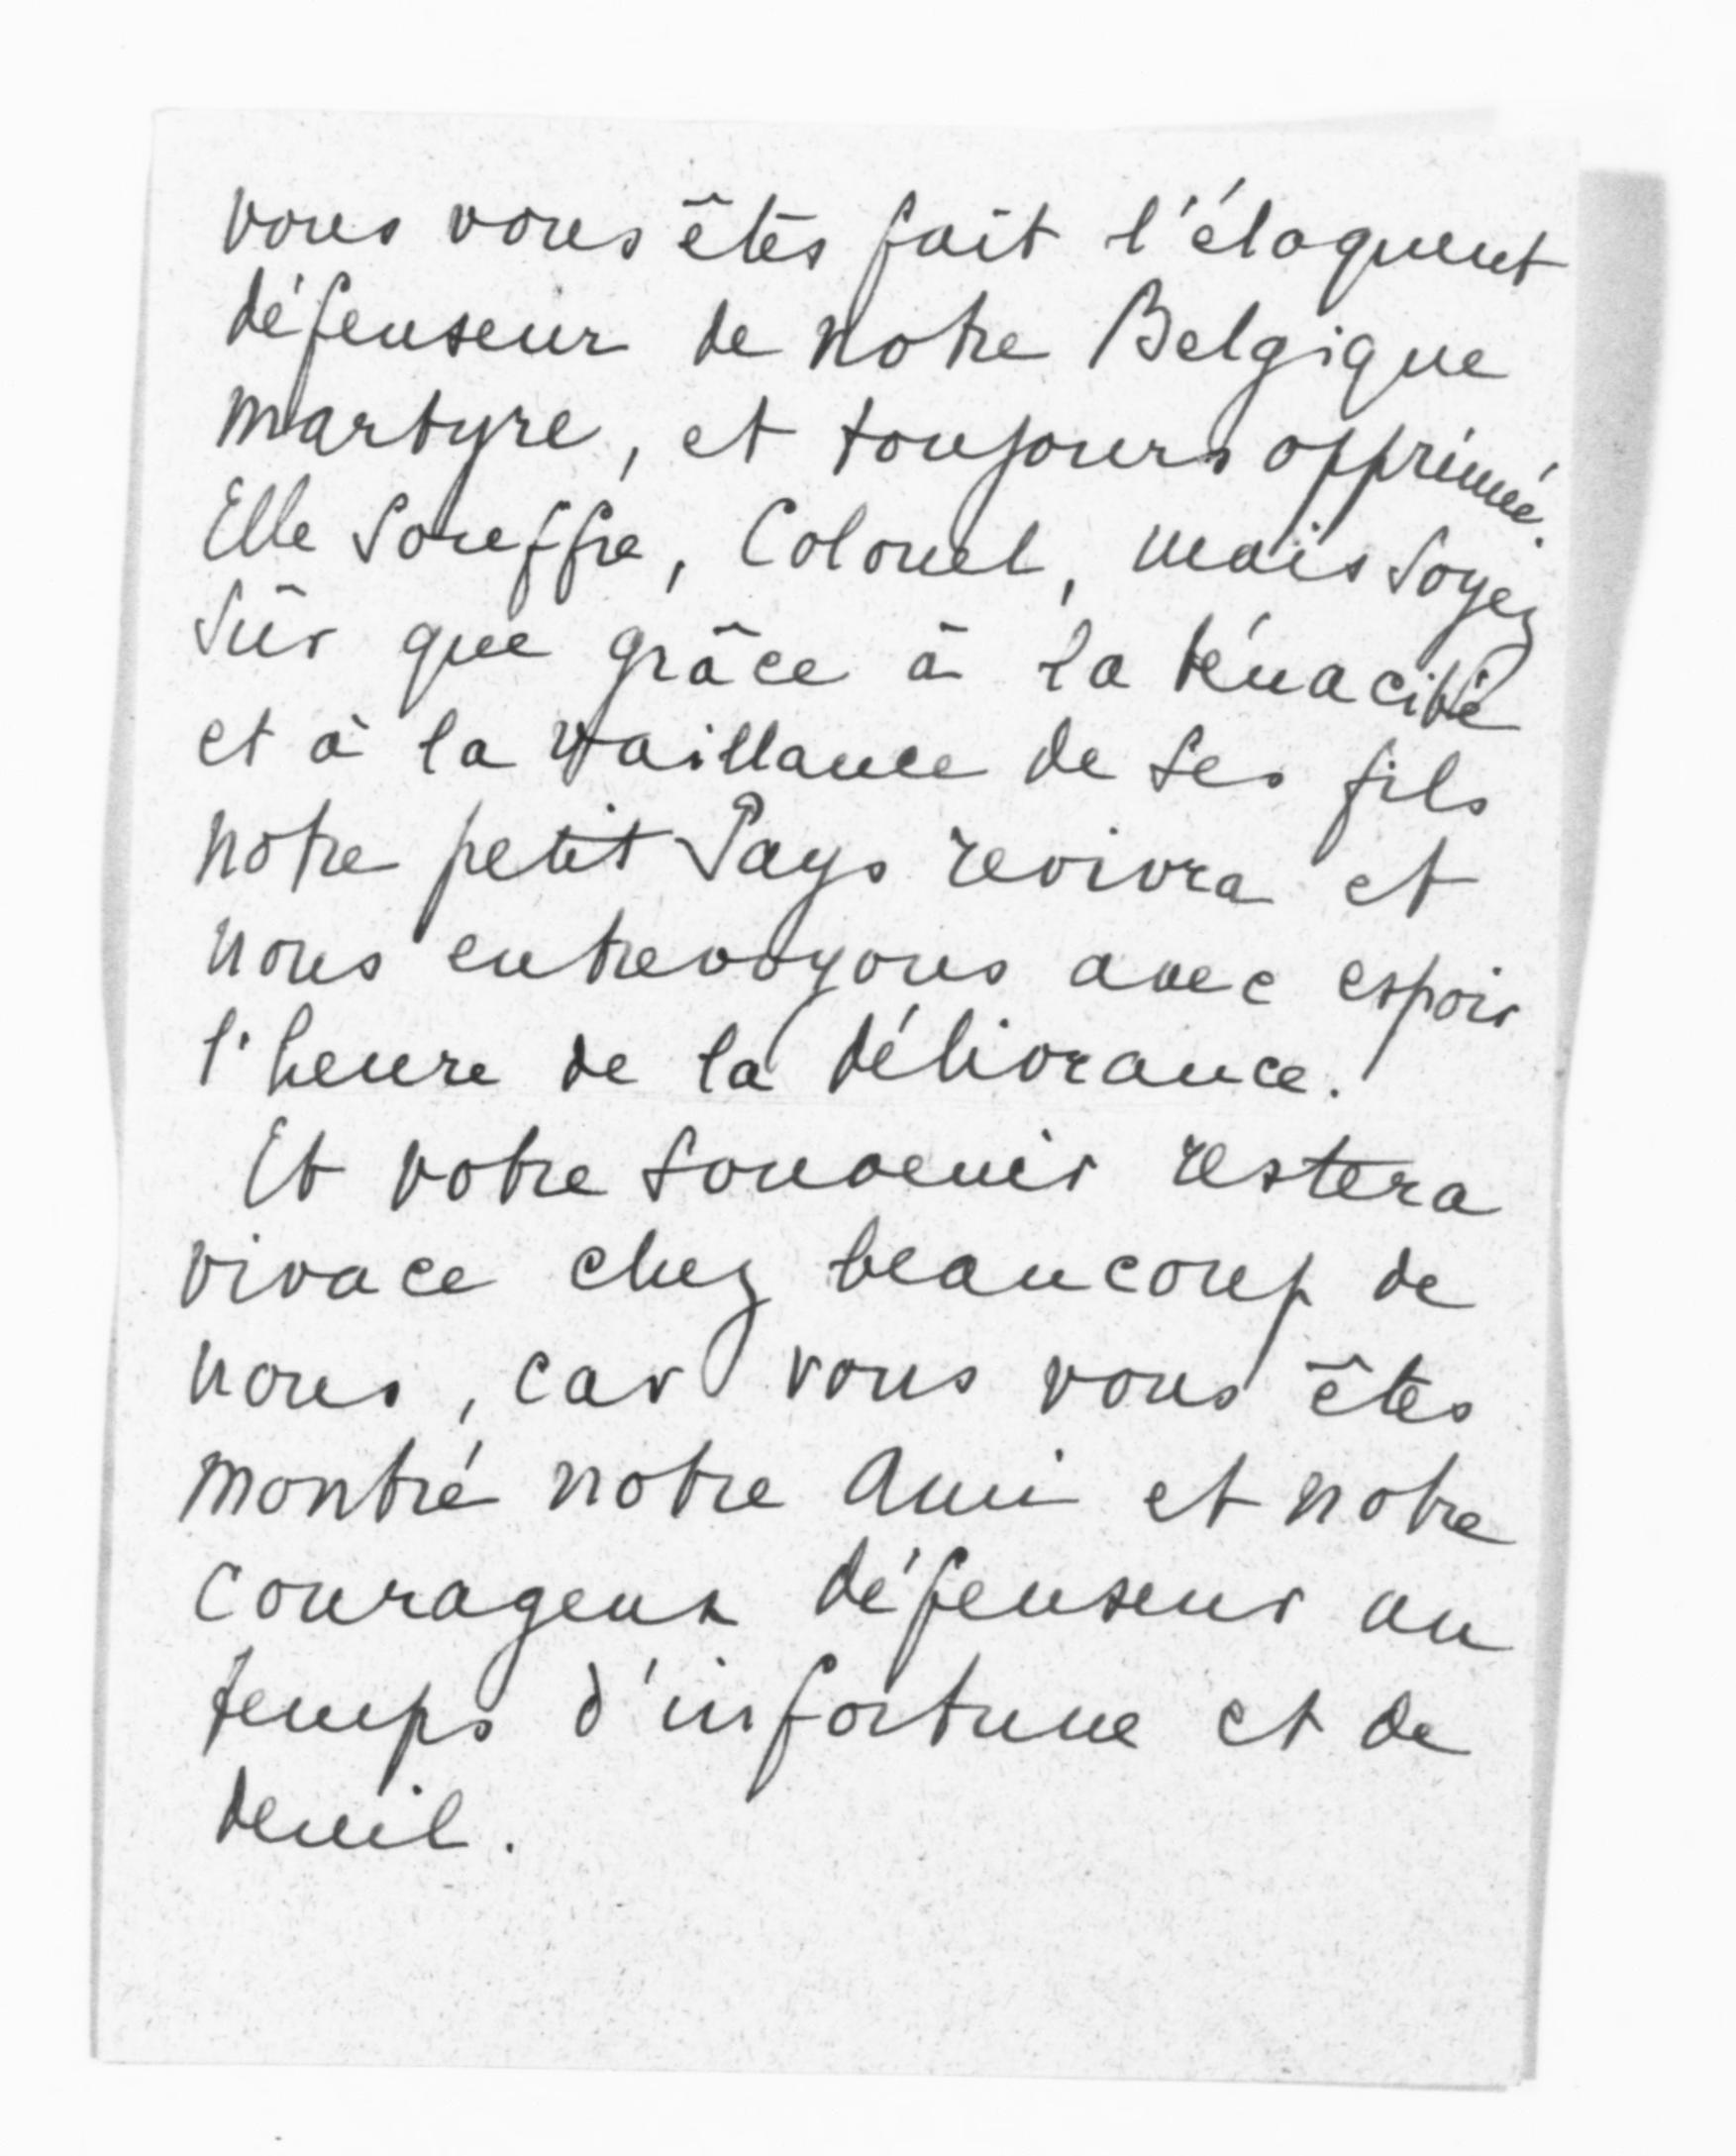 vous vous êtes fait l'éloquent
défenseur de notre Belgique
martyre, et toujours opprimé.
Elle souffre, Colonel, mais soyez
sûr que grâce à la ténacité
et à la vaillance de ses fils
notre petit Pays revivra et
nous entrevoyons avec espoir
l'heure de la délivrance.
Et votre souvenir restera
vivace chez beaucoup de
nous, car vous vous êtes
montré notre Ami et notre
courageux défenseur au
temps d'infortune et de
deuil.